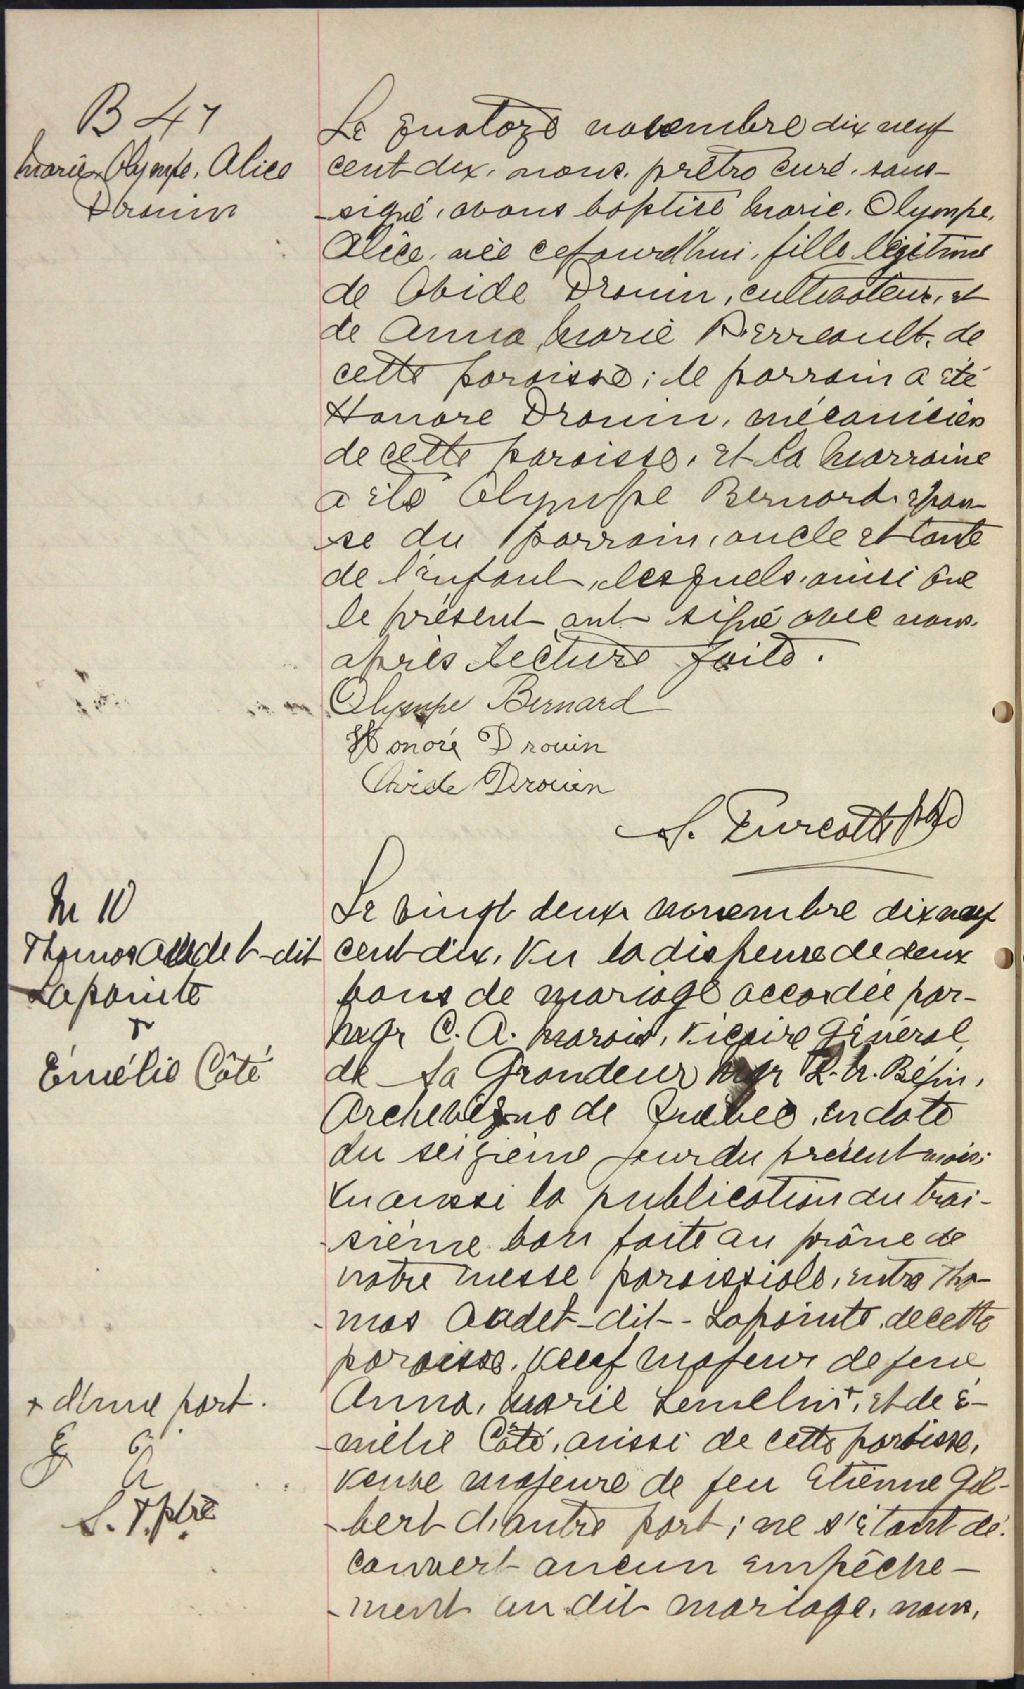 B 47
Marie, Olympe, Alice
Drouin
Le quatorze novembre dix neuf
cent dix, nous, prêtre curé, sous-
-signé, avons baptisé Marie, Olympe,
Alice, née cejourd'hui, fille légitime
de Ovide Drouin, cultivateur, et
de Anna Marie Perreault, de
cette paroisse; le parrain a été
Honoré Drouin, mécanicien
de cette paroisse, et la Marraine
a été Olympe Bernard épou-
-se du parrain, oncle et tante
de l'enfant, lesquels, ainsi que
le présent ont signé avec nous
après lecture faite.
Olympe Bernard
Honoré Drouin
Ovide Drouin
S. Turcotte ptre
M 10
Thomas Audet-dit
Lapointe
&
Émélie Côté
Le vingt deux novembre dix neuf
cent dix, Vu la dispense de deux
bans de mariage accordée par-
Mgr C. A. Marois, Vicaire Général
de Sa Grandeur Mgr L. N. Bégin,
Archevêque de Québec, en date
du seizième jour du présent mois;
Vu aussi la publication du troi-
-sième ban faite au prône de
notre messe paroissiale, entre Tho-
-mas Audet-dit-Lapointe de cette
paroisse, Veuf majeur de feue
Anna, Marie Lemelin +, et de É-
-mélie Côté, aussi de cette paroisse,
Veuve majeure de feu Etienne Gil-
-bert d'autre part; ne s'étant dé-
couvert aucun empêche-
-ment au dit mariage, nous,
+ d'une part.
S. T. ptre